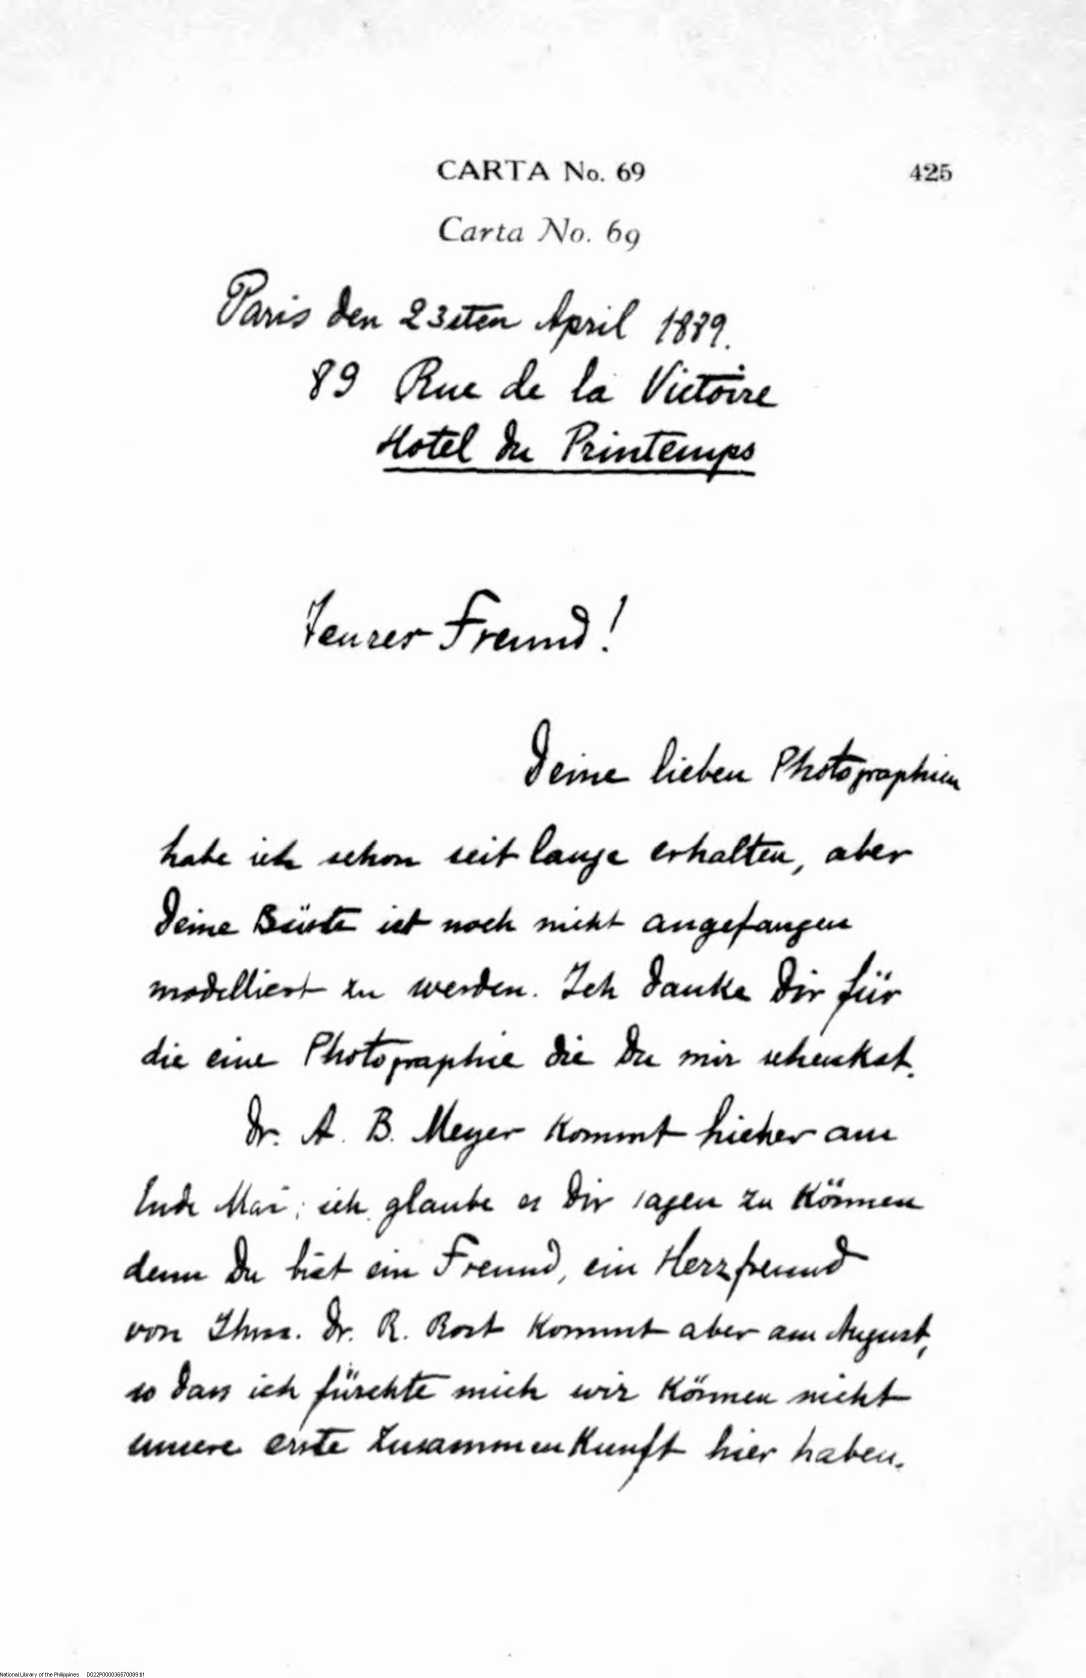 CARTA No. 69
425
Carta No. 69
Paris den 23sten April 1889.
89 Rue de la Victoire
Hotel du Printemps
Teurer Freund!
Deine lieben Photographien
habe ich schon seit lange erhalten, aber
Deine Büste ist noch nicht angefangen
modelliert zu werden. Ich danke Dir für
die eine Photographie die Du mir schenkst.
Dr. A. B. Meyer kommt hieher am
Ende Mai; ich glaube es Dir sagen zu können
denn Du bist ein Freund, ein Herzfreund
von Ihm. Dr. R. Rost kommt aber am August,
so dass ich fürchte mich wir können nicht
unsere erste Zusammenkunft hier haben.
National Library of the Philippines